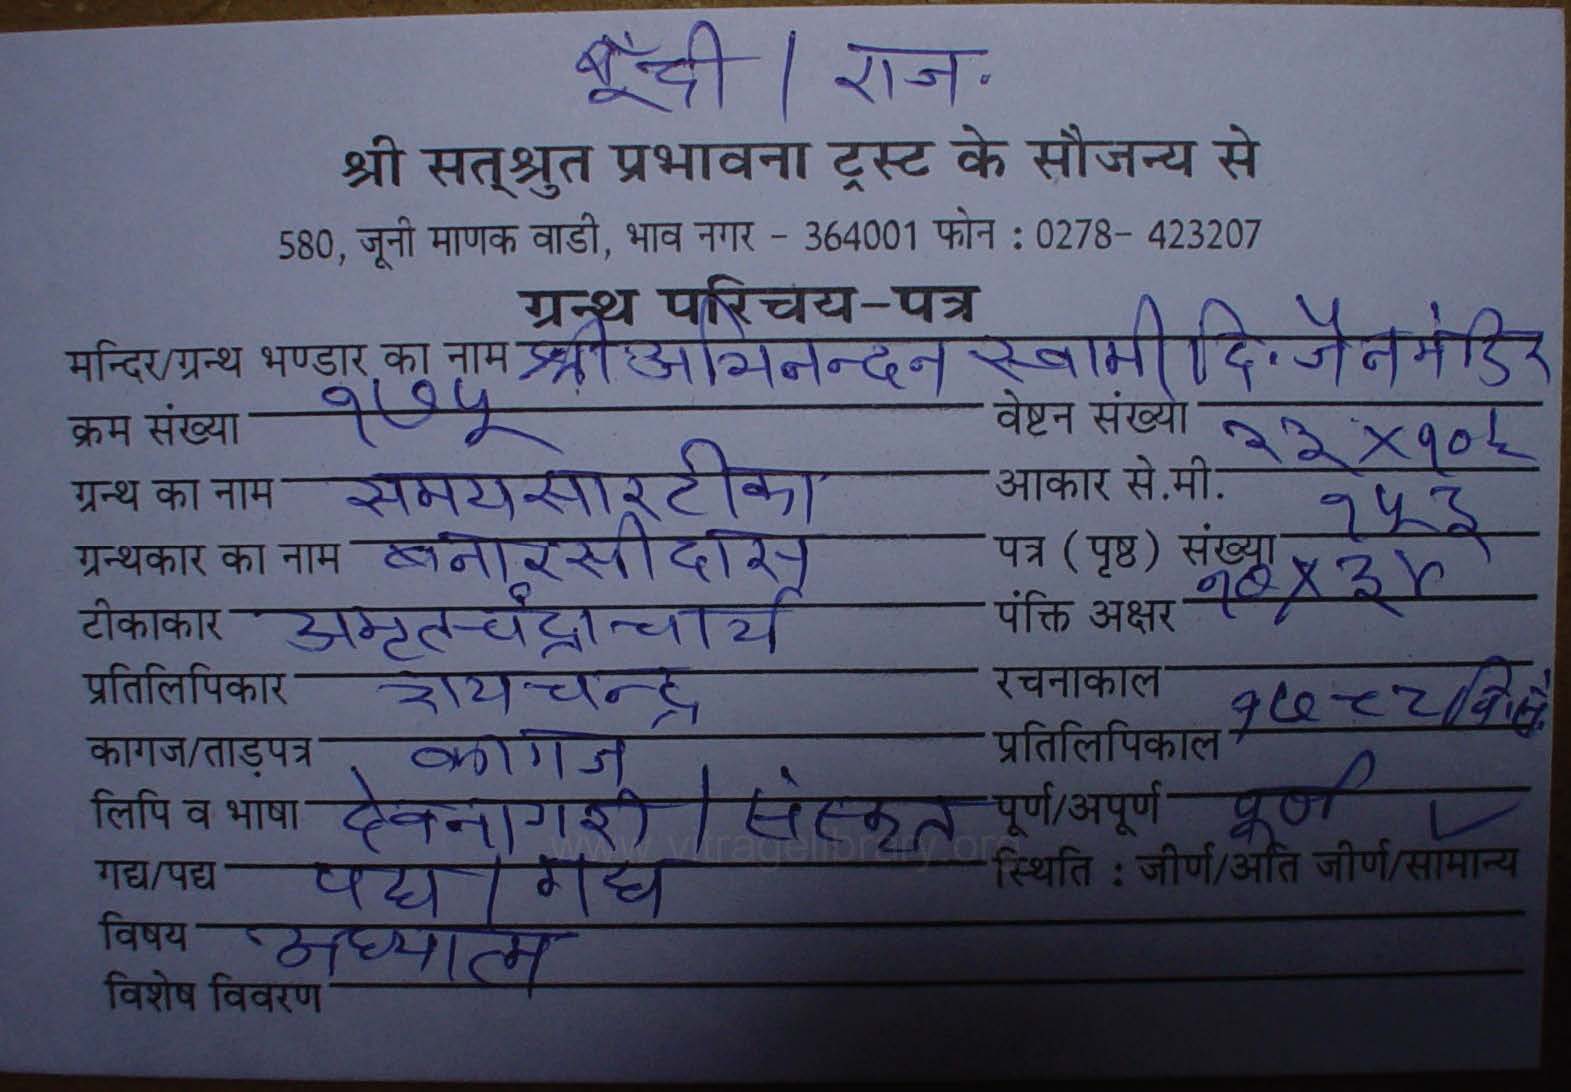 बूँन्दी / राज.
श्री सत्श्रुत प्रभावना ट्रस्ट के सौजन्य से
580, जूनी माणक वाडी, भाव नगर - 364001 फोन : 0278- 423207
ग्रन्थ परिचय-पत्र
मन्दिर/ग्रन्थ भण्डार का नाम श्री अभिनन्दन स्वामी दि. जैन मंदिर
क्रम संख्या १७५ वेष्टन संख्या
ग्रन्थ का नाम समयसार टीका आकार से.मी. २३ x १०१
ग्रन्थकार का नाम बनारसीदास पत्र (पृष्ठ) संख्या १५३
टीकाकार अमृतचंद्राचार्य पंक्ति अक्षर १० x ३४
प्रतिलिपिकार रायचन्द्र रचनाकाल
कागज/ताड़पत्र कागज प्रतिलिपिकाल वि.सं.
लिपि व भाषा देवनागरी / संस्कृत पूर्ण/अपूर्ण पूर्ण
www.vitragelibrary.org
गद्य/पद्य पद्य / गद्य स्थिति : जीर्ण/अति जीर्ण/सामान्य
विषय अध्यात्म
विशेष विवरण